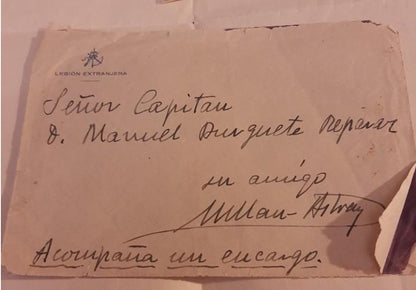 LEGIÓN EXTRANJERA
Señor Capitan
D. Manuel Burguete Reparaz
su amigo
Millan-Astray
Acompaña un encargo.